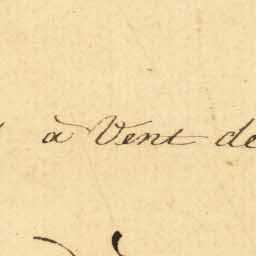 à Vent de